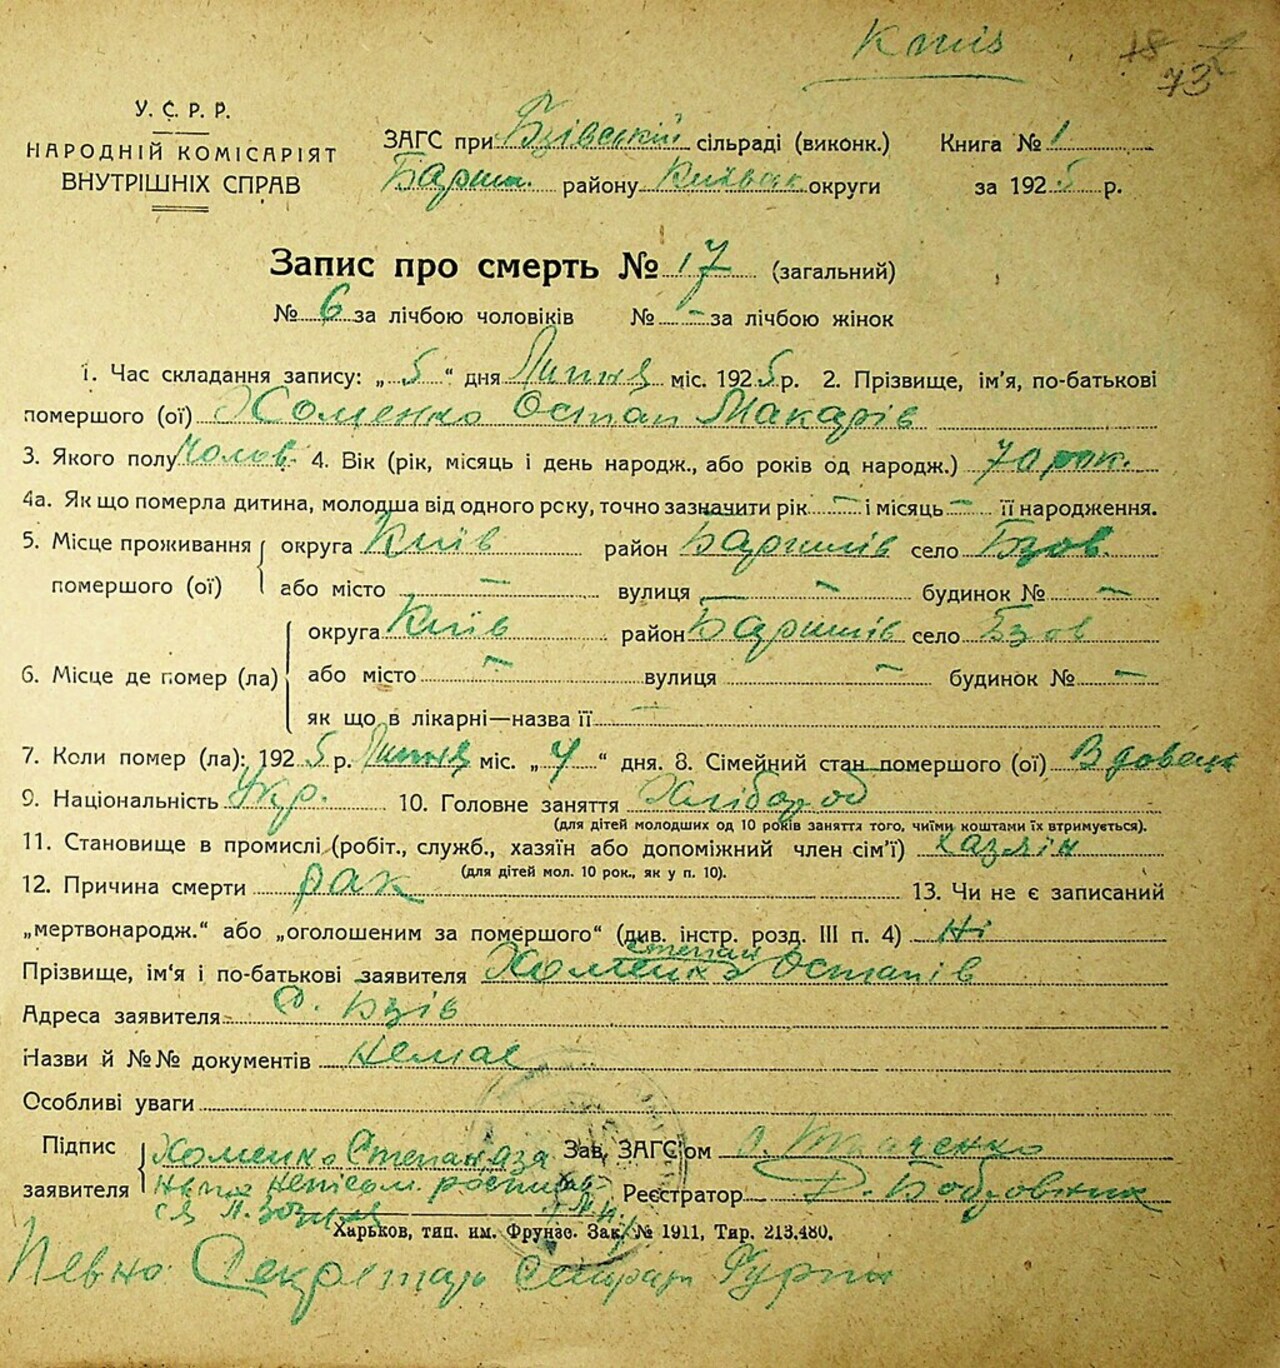 Київ
73
У. С. Р. Р.
НАРОДНІЙ КОМІСАРІЯТ
ВНУТРІШНІХ СПРАВ
ЗАГС при Бзівській сільраді (виконк.) Книга № 1
Бариш. району округи за 1925 р.
Запис про смерть № 17 (загальний)
№ 6 за лічбою чоловіків № - за лічбою жінок
1. Час складання запису: „5“ дня Липня міс. 1925 р. 2. Прізвище, ім'я, по-батькові
помершого (ої) Хоменко Остап Макарів
3. Якого полу Чолов. 4. Вік (рік, місяць і день народж., або років од народж.) 70 рок.
4а. Як що померла дитина, молодша від одного рску, точно зазначити рік - і місяць - її народження.
5. Місце проживання помершого (ої) округа Київ район Баришів село Бзов.
або місто - вулиця - будинок № -
6. Місце де помер (ла) округа Київ район Баришів село Бзов
або місто - вулиця - будинок № -
як що в лікарні—назва її -
7. Коли помер (ла): 1925 р. Липня міс. „4“ дня. 8. Сімейний стан помершого (ої) Вдовець
9. Національність Укр. 10. Головне заняття Хлібороб
(для дітей молодших од 10 років заняття того, чиїми коштами їх втримується).
11. Становище в промислі (робіт., служб., хазяїн або допоміжний член сім'ї) хазяін
(для дітей мол. 10 рок., як у п. 10).
12. Причина смерти рак 13. Чи не є записаний
„мертвонародж.“ або „оголошеним за помершого“ (див. інстр. розд. III п. 4) Ні
Степан
Прізвище, ім'я і по-батькові заявителя Хоменко Остапів
Адреса заявителя с. Бзів
Назви й №№ документів немає
Особливі уваги
Підпис заявителя Хоменко Степан за Зав. ЗАГС'ом Ткаченко
непісьм. Реєстратор Д. Бобровник
Харьков, тип. им. Фрунзе. Зак. № 1911, Тир. 213.480.
Певно: Секретарь Сельради